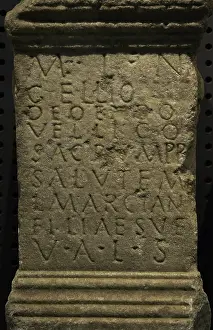 M · L · N
CELLIO
DEO BERO
VELLICO
SACR · IMP
SALVTEM
MARCIAN
FILIAE SVE
V · A · L · S